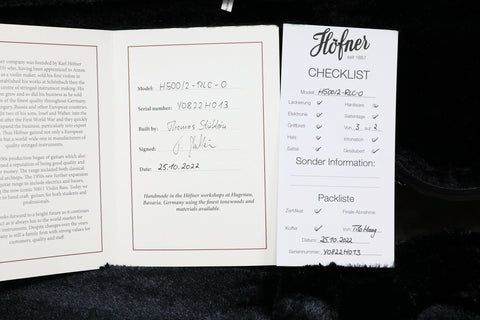 company was founded by Karl Höfner
who, having been apprenticed to Anton
as a violin maker, sold his first violins in
established his works at Schönbach then the
centre of stringed instrument making. His
soon grew and so did his business as he sold
of the finest quality throughout Germany,
Hungary, Russia and other European countries.
two of his sons, Josef and Walter, into the
after the First World War and they quickly
expand the business, particularly into export
Thus Höfner gained not only a European
but a world wide one as manufacturers of
quality stringed instruments.
production began of guitars which also
a reputation of being good quality and
money. The range included both classical
archtops. The 1950s saw further expansion
range to include electrics and basses,
the now iconic 500/1 Violin Bass. Today we
to hand craft guitars for both students and
professionals.
looks forward to a bright future as it continues
as it always has to the world market for
instruments. Despite changes over the years
company is still a family firm with strong values for
customers, quality and staff.
Model: H500/2-RLC-O
Serial number: Y0822H013
Built by: Thomas
Signed:
Date: 25.10.2022
Handmade in the Höfner workshops at Hagenau,
Bavaria, Germany using the finest tonewoods and
materials available.
Höfner
seit 1887
CHECKLIST
Model: H500/2-RLC-O
Lackierung Hardware
Elektronik Saitenlage
Griffbrett Von: 3 2
Hals Intonation
Sattel Gesäubert
Sonder Information:
Packliste
Zertifikat Finale Abnahme:
Koffer Von: Tilo Haag
Datum: 25.10.2022
Seriennummer: Y0822H013